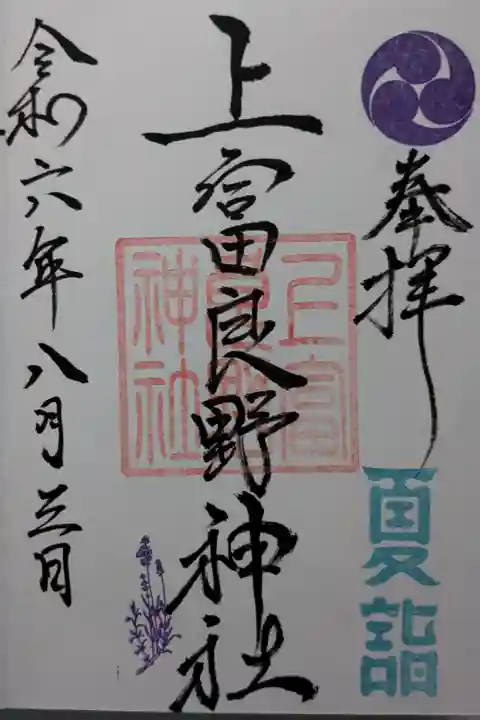 奉拝
夏詣
上富良野神社
上富良野神社
令和六年八月三日